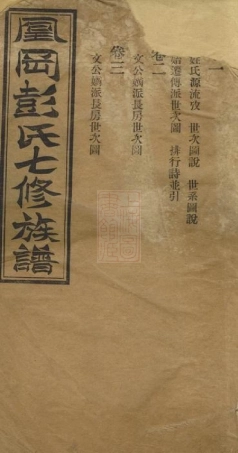 一
姓氏源流攷 世次圖說 世系圖說
卷二
遷傳派世次圖 排行詩並引
文公嫡派長房世次圖
卷三
文公嫡派長房世次圖
鳳岡彭氏七修族譜